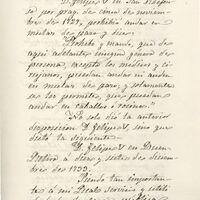 D. Felipe V en San Ildefon-
so por prag. de cinco de noviem-
bre de 1729, prohibió andar en
mulas de paso y dice:
"Prohibo y mando, que de
aquí adelante ningun género de
persona, excepto los médicos y ci-
rujanos, puedan andar ni anden
en mulas de paso, y solamente
se les permita, que puedan
andar en caballos ó rocines."
No solo dió la anterior
disposicion D. Felipe V, sino que
dictó la siguiente
D. Felipe V en Buen
Retiro á diez y siete de
de 1733.
Siendo tan importan-
te á mi Real servicio y